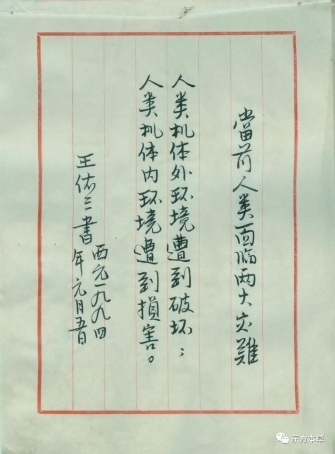 當前人类面临两大灾難
人类机体外环境遭到破坏；
人类机体内环境遭到損害。
王佑三書
西元一九九四
年元月五日